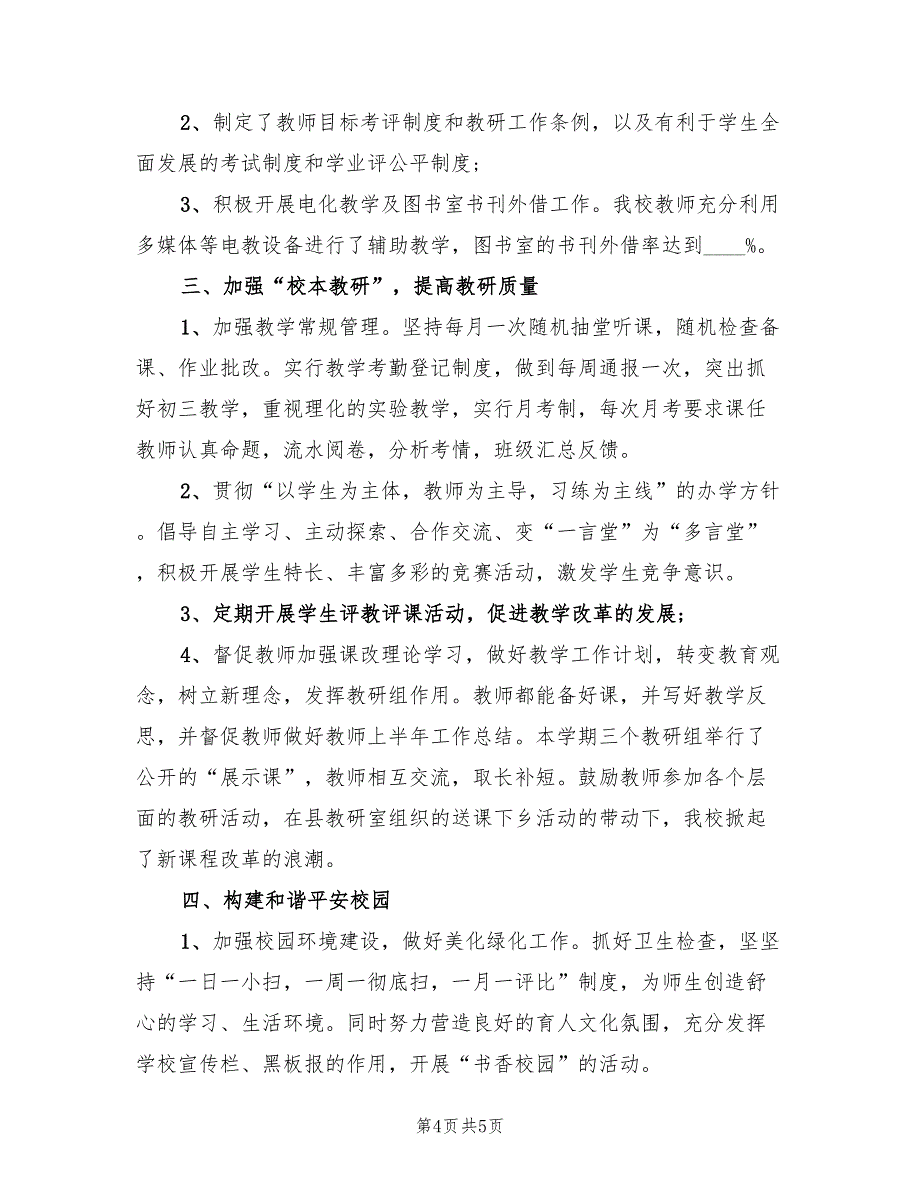 2、制定了教师目标考评制度和教研工作条例，以及有利于学生全
面发展的考试制度和学业评公平制度;
3、积极开展电化教学及图书室书刊外借工作。我校教师充分利用
多媒体等电教设备进行了辅助教学，图书室的书刊外借率达到____%。
三、加强“校本教研”，提高教研质量
1、加强教学常规管理。坚持每月一次随机抽堂听课，随机检查备
课、作业批改。实行教学考勤登记制度，做到每周通报一次，突出抓
好初三教学，重视理化的实验教学，实行月考制，每次月考要求课任
教师认真命题，流水阅卷，分析考情，班级汇总反馈。
2、贯彻“以学生为主体，教师为主导，习练为主线”的办学方针
。倡导自主学习、主动探索、合作交流、变“一言堂”为“多言堂”
，积极开展学生特长、丰富多彩的竞赛活动，激发学生竞争意识。
3、定期开展学生评教评课活动，促进教学改革的发展;
4、督促教师加强课改理论学习，做好教学工作计划，转变教育观
念，树立新理念，发挥教研组作用。教师都能备好课，并写好教学反
思，并督促教师做好教师上半年工作总结。本学期三个教研组举行了
公开的“展示课”，教师相互交流，取长补短。鼓励教师参加各个层
面的教研活动，在县教研室组织的送课下乡活动的带动下，我校掀起
了新课程改革的浪潮。
四、构建和谐平安校园
1、加强校园环境建设，做好美化绿化工作。抓好卫生检查，坚坚
持“一日一小扫，一周一彻底扫，一月一评比”制度，为师生创造舒
心的学习、生活环境。同时努力营造良好的育人文化氛围，充分发挥
学校宣传栏、黑板报的作用，开展“书香校园”的活动。
第4页共5页